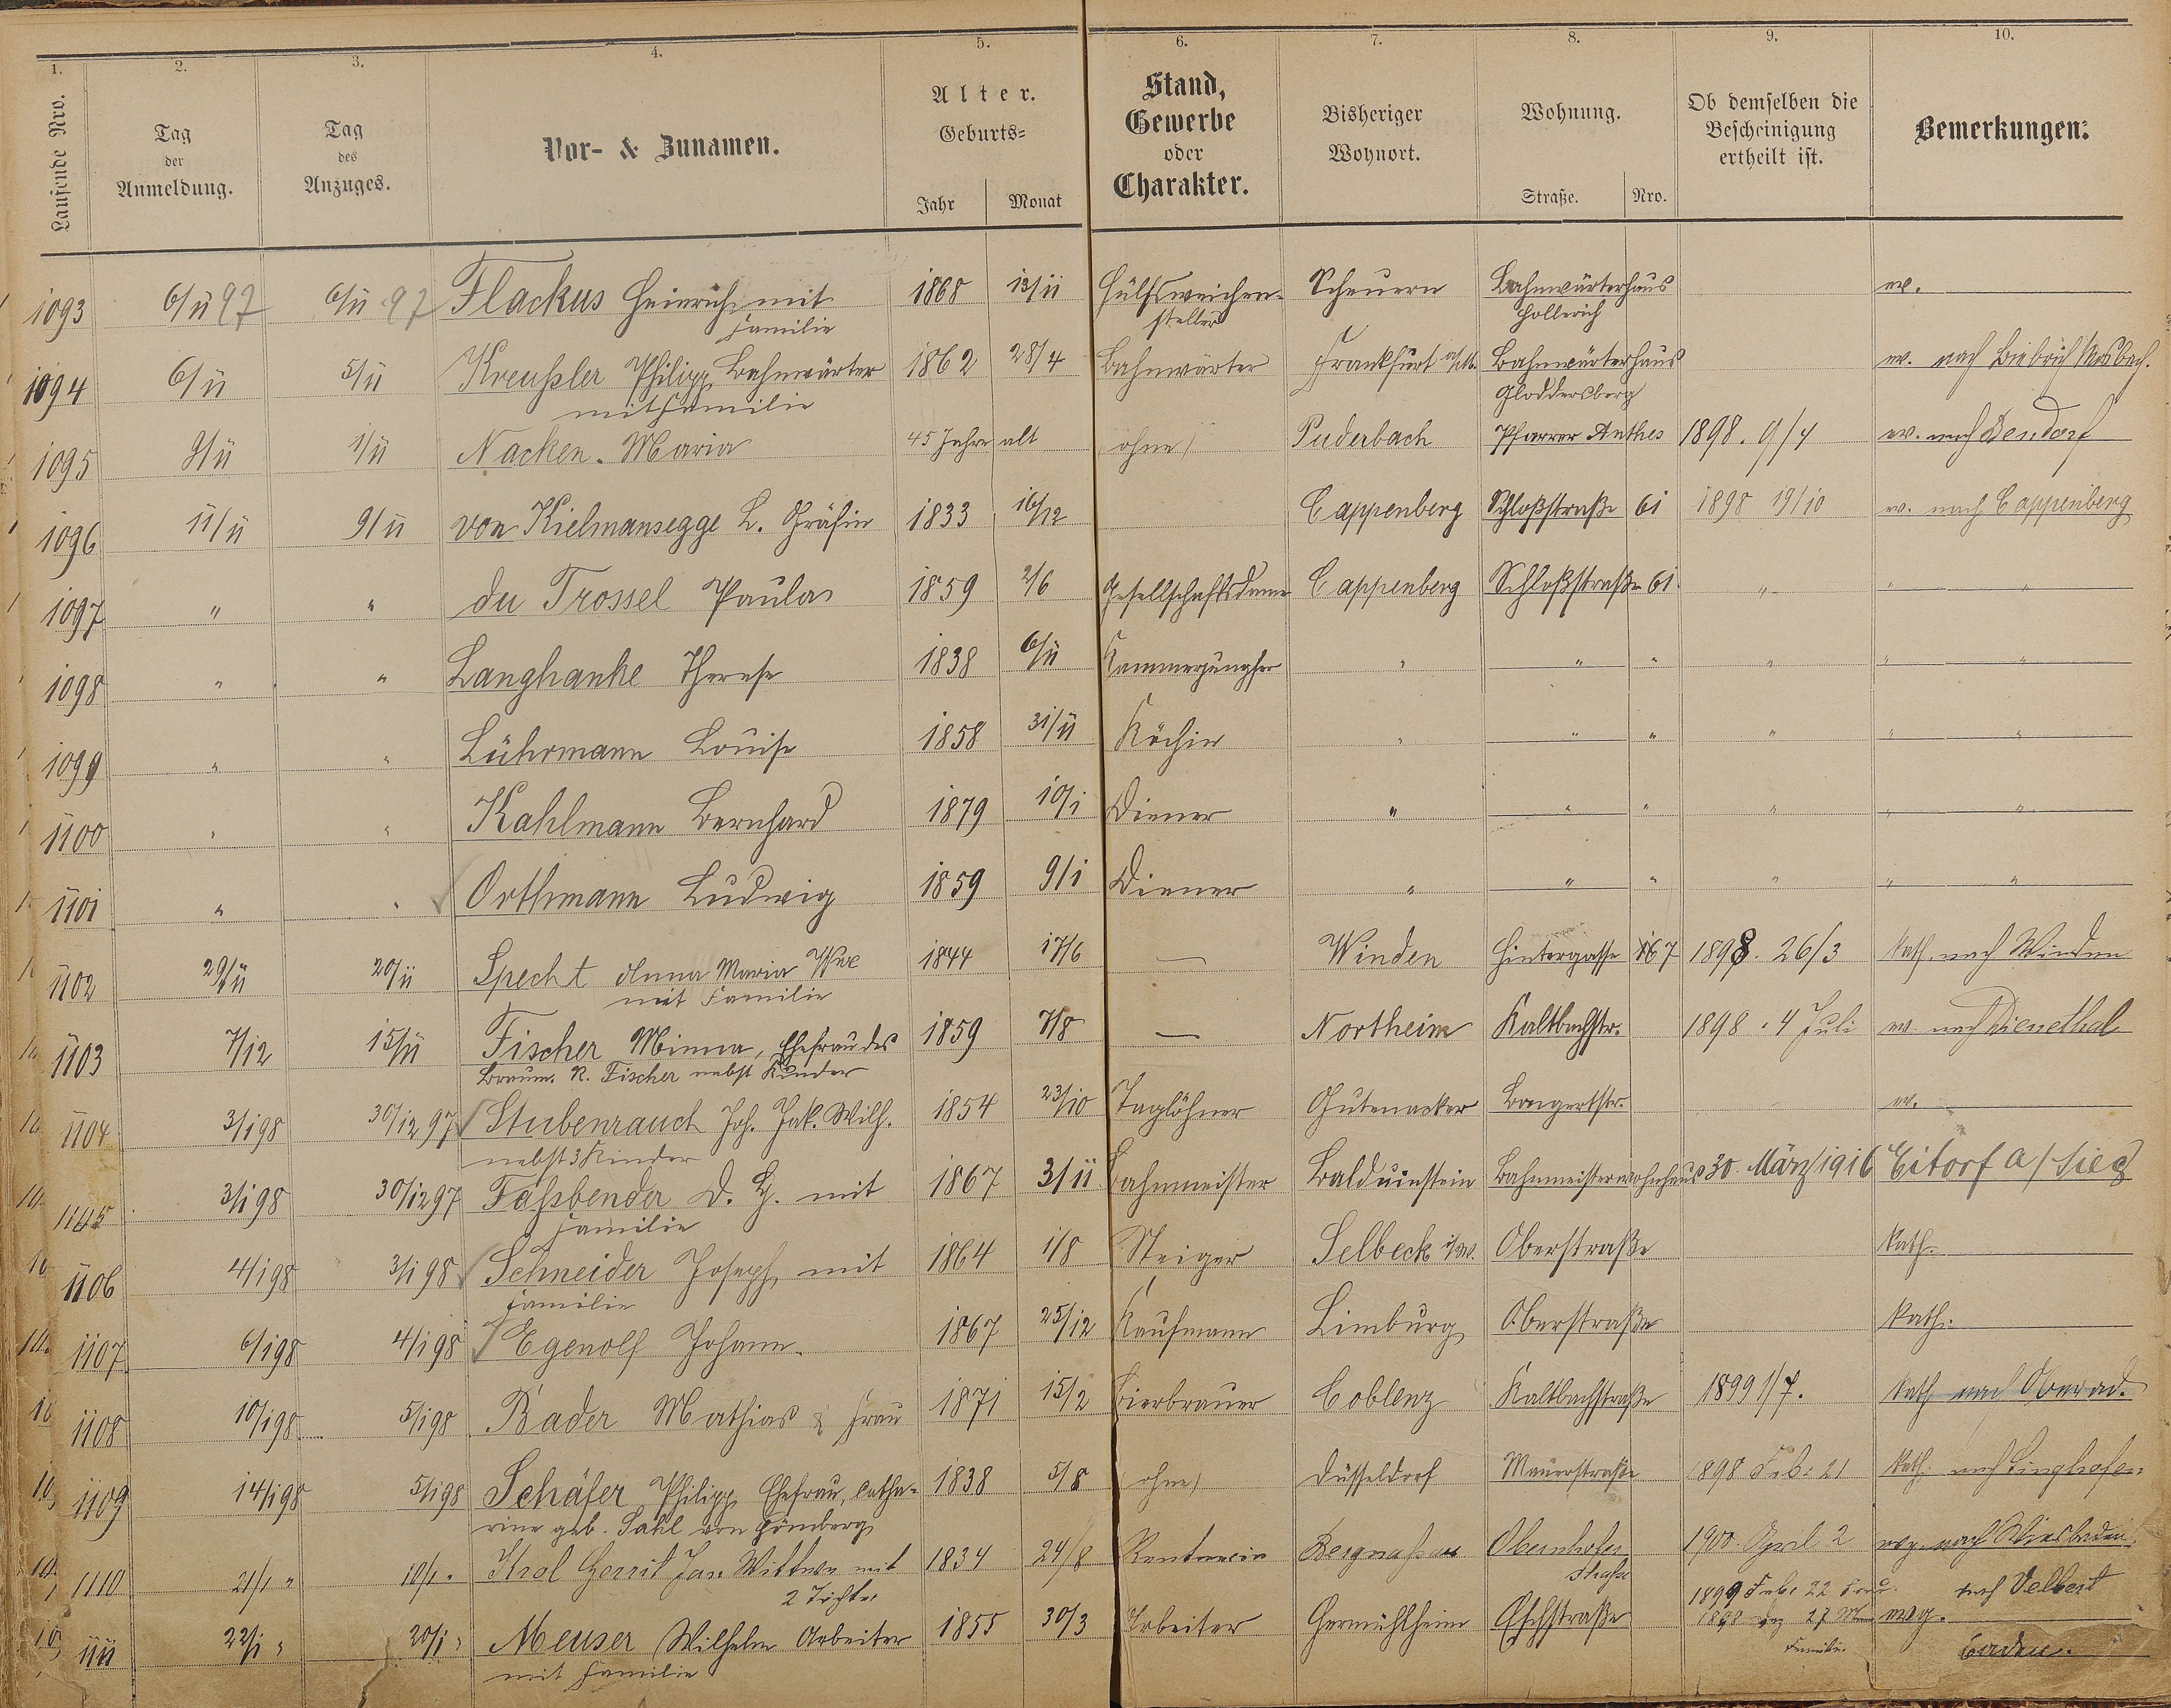 1. 2. 3. 4. 5. 6. 7. 8. 9. 10.
Laufende Nro.
Tag der Anmeldung.
Tag des Anzuges.
Vor- & Zunamen.
Alter.
Geburts=
Jahr Monat
Stand, Gewerbe oder Charakter.
Bisheriger Wohnort.
Wohnung.
Straße. Nro.
Ob demselben die Bescheinigung ertheilt ist.
Bemerkungen.
1093 6/11 97 6/11 97 Flackus Heinrich mit 1868 13/11 Hülfsweichen- Scheuern Bahnwärterhaus ev.
Familie steller Hollerich
1094 6/11 5/11 Kreußler Philipp Bahnwärter 1862 28/4 Bahnwärter Frankfurt a/M. Bahnwärterhaus ev. nach Biebrich Mosbach.
mit Familie Gloddersberg
1095 9/11 1/11 Nacken Maria 45 Jahre alt ohne Puderbach Pfarrer Anthes 1898. 9/4 ev. nach Bendorf
1096 11/11 9/11 von Kielmansegge L. Gräfin 1833 16/12 Cappenberg Schloßstraße 61 1898 19/10 ev. nach Cappenberg
1097 " " du Trossel Paula 1859 2/6 Gesellschaftsdame Cappenberg Schloßstraße 61 " " "
1098 " " Langhanke Therese 1838 6/11 Kammerjungfer " " " " " "
1099 " " Lührmann Louise 1858 31/11 Köchin " " " " " "
1100 " " Kahlmann Bernhard 1879 10/1 Diener " " " " " "
1101 " " Orthmann Ludwig 1859 9/1 Diener " " " " " "
1102 29/11 20/11 Specht Anna Maria Wwe 1844 17/6 — Winden Hintergasse 167 1898. 26/3 kath. nach Winden
mit Familie
1103 7/12 15/11 Fischer Minna, Ehefrau des 1859 7/8 — Northeim Kaltbachstr. 1898. 4 Juli ev. nach Dienethal
Braum. R. Fischer nebst Kinder
1104 3/1 98 30/12 97 Stubenrauch Joh. Jak. Wilh. 1854 23/10 Taglöhner Gutenacker Bongertstr. ev.
nebst 3 Kinder
1105 3/1 98 30/12 97 Faßbender D. H. mit 1867 3/11 Bahnmeister Balduinstein Bahnmeisterwohnhaus 30. März 1916 Eitorf a/Sieg
Familie
1106 4/1 98 3/1 98 Schneider Joseph mit 1864 1/8 Steiger Selbeck i/W. Oberstraße kath.
Familie
1107 6/1 98 4/1 98 Egenolf Johann. 1867 25/12 Kaufmann Limburg Oberstraße kath.
1108 10/1 98 5/1 98 Bader Mathias & Frau 1871 15/2 Bierbrauer Coblenz Kaltbachstraße 1899 1/7. kath. nach Oberrad.
1109 14/1 98 5/1 98 Schäfer Philipp Ehefrau, Catha- 1838 5/8 ohne Düsseldorf Mauerstraße 1898 Feb. 21 kath. nach Singhofen
rine geb. Sahl von Hömberg
1110 21/1 " 10/1 " Krol Gerrit Jan Wittwe mit 1834 24/8 Rentnerin Obernhofer 1900. April 2 evg. nach Wiesbaden
2 Töchter Straße
1899 Feb. 22 Frau nach Velbert
1111 22/1 " 20/1 " Meuser Wilhelm Arbeiter 1855 30/3 Arbeiter Eschstraße 1898 27 evg.
mit Familie Familie.